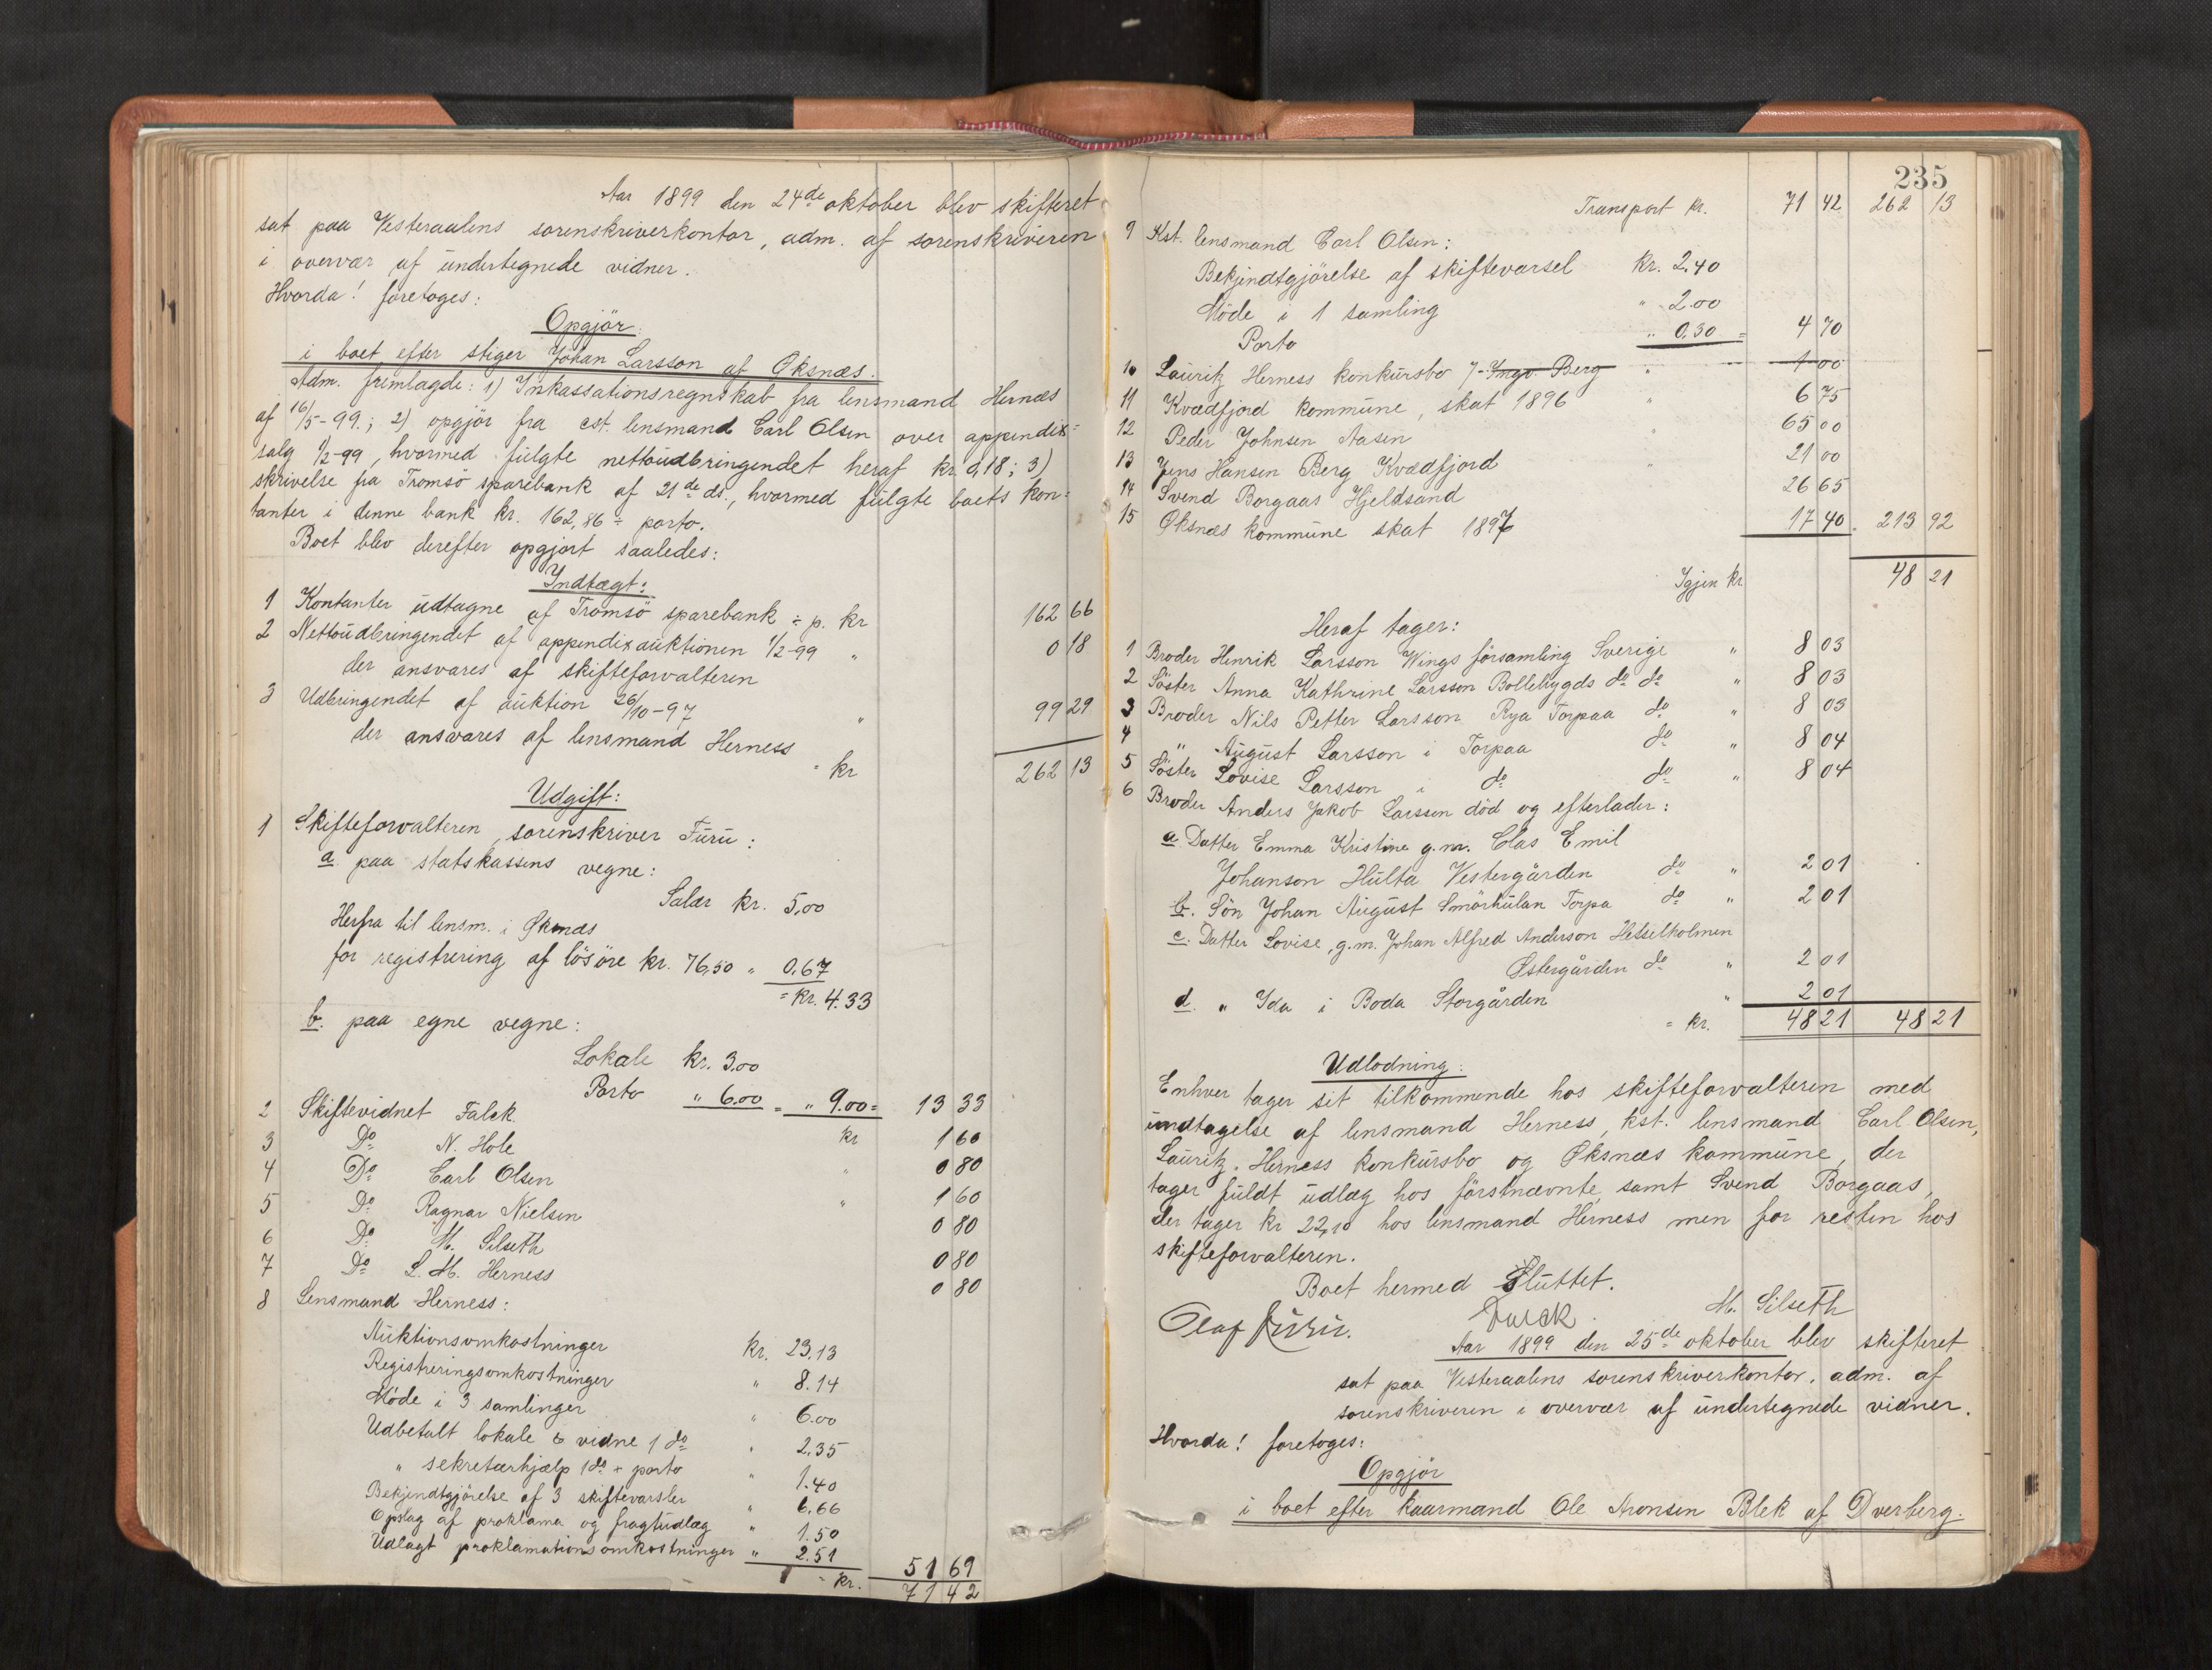 Aar 1899 den 24de oktober blev skifteret
sat paa Vesteraalens sorenskriverkontor, adm. af sorenskriveren
i overvær af undertegnede vidner.
Hvorda! foretoges:
Opgjör
i boet efter stiger Johan Larsson af Öksnæs.
Adm. fremlagde: 1) Inkassationsregnskab fra lensmand Hernæs
af 16/5-99.; 2) opgjör fra cst. lensmand Carl Olsen over appendix=
salg 1/2-99, hvormed fulgte nettoudbringendet heraf kr. 0,18; 3)
skrivelse fra Tromsö sparebank af 21de ds., hvormed fulgte boets kon=
tanter i denne bank kr. 162,86 ÷ porto.
Boet blev derefter opgjort saaledes:
Indtægt:
1 Kontanter udtagne af Tromsö sparebank ÷ p. kr 162 66
2 Nettoudbringendet af appendixauktionen 1/2-99 " 0 18
der ansvares af skifteforvalteren
3 Udbringendet af auktion 26/10-97 " 99 29
der ansvares af lensmand Herness
= kr 262 13
Udgift:
1 Skifteforvalteren, sorenskriver Furu:
a paa statskassens vegne:
Salær kr. 5,00
Herfra til lensm. i Öksnæs
for registrering af lösöre kr. 76,50 " 0.67
= kr. 4.33
b. paa egne vegne:
Lokale kr. 3.00
Porto " 6.00 = " 9.00 = 13 33
2 Skiftevidnet Falck kr 1 60
3 Do N. Hole " 0 80
4 Do Carl Olsen " 1 60
5 Do Ragnar Nielsen 0 80
6 Do M. Silseth 0 80
7 Do L. M. Herness 0 80
8 Lensmand Herness:
Auktionsomkostninger kr. 23.13
Registreringsomkostninger " 8.14
Möde i 3 samlinger " 6.00
Udbetalt lokale & vidne 1 do " 2.35
" sekretærhjælp 1 do + porto " 1.40
Bekjendtgjörelse af 3 skiftevarsler " 6.66
Opslag af proklama og fragtudlæg " 1.50
Udlagt proklamationsomkostninger " 2.51 51 69
= kr. 71 42
235
Transport kr. 71 42 262 13
9 Kst. lensmand Carl Olsen:
Bekjendtgjörelse af skiftevarsel kr. 2.40
Möde i 1 samling " 2.00
Porto " 0.30 = 4 70
10 Lauritz Herness konkursbo 7- Inga Berg " 1 00
11 Kvædfjord kommune, skat 1896 " 6 75
12 Peder Johnsen Aasen " 65 00
13 Jens Hansen Berg Kvædfjord " 21 00
14 Svend Borgaas Hjeldsand 26 65
15 Öksnæs kommune skat 1897 17 40 213 92
Igjen kr 48 21
Heraf tager:
1 Broder Henrik Larsson Wings församling Sverige " 8 03
2 Söster Anna Kathrine Larsson Bollebygds do do " 8 03
3 Broder Nils Petter Larsson Rya Torpaa do " 8 03
4 " August Larsson i Torpaa do " 8 04
5 Söster Lovise Larsson i do do " 8 04
6 Broder Anders Jakob Larsson död og efterlader:
a Datter Emma Kristine g.m. Clas Emil
Johanson Hulta Vestergården do " 2 01
b. Sön Johan August Smörhulan Torpa do " 2 01
c. Datter Lovise, g.m. Johan Alfred Anderson Hesselholmen
Östergården do " 2 01
d. " Ida i Boda Storgården " 2 01
= kr. 48 21 48 21
Udlodning:
Enhver tager sit tilkommende hos skifteforvalteren med
undtagelse af lensmand Herness, kst. lensmand Carl Olsen,
Lauritz Herness konkursbo og Öksnæs kommune, der
tager fuldt udlæg hos förstnævnte, samt Svend Borgaas,
der tager kr 22,10 hos lensmand Herness men for resten hos
skifteforvalteren.
Boet hermed Sluttet.
Olaf Furu. Falck M. Silseth
Aar 1899 den 25de oktober blev skifteret
sat paa Vesteraalens sorenskriverkontor, adm. af
sorenskriveren i overvær af undertegnede vidner.
Hvorda! foretoges:
Opgjör
i boet efter kaarmand Ole Aronsen Blek af Dverberg.